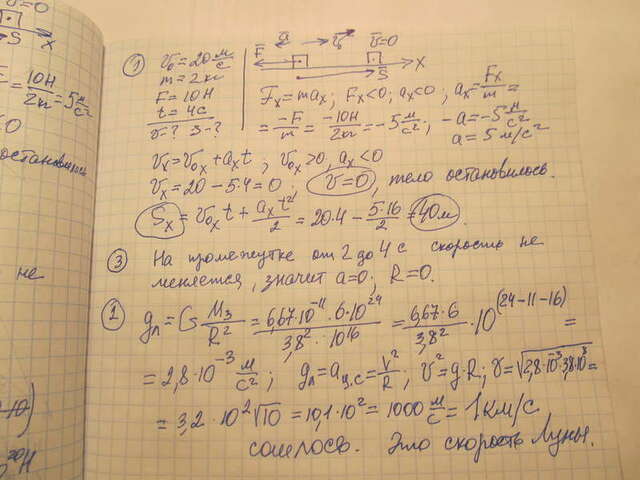 v=0
S x
10Н
= 10Н/2кг = 5 м/с²
остановилось
не
20Н
① v₀=20 м/с
m=2кг
F=10Н
t=4с
v-? S-?
a v v=0
F S x
Fx=max; Fx<0; ax<0; ax=Fx/m=
=-F/m=-10Н/2кг=-5 м/с²; -a=-5 м/с²
a=5 м/с²
vx=v₀x+axt; v₀x>0, ax<0
vx=20-5·4=0; v=0, тело остановилось.
Sx=v₀xt+axt²/2=20·4-5·16/2=40м.
③ На промежутке от 2 до 4 с скорость не
меняется, значит a=0; R=0.
② gл=G Mз/R²=6,67·10⁻¹¹·6·10²⁴/3,8²·10¹⁶=6,67·6/3,8²·10^(24-11-16)=
=2,8·10⁻³ м/с²; gл=aц.с=v²/R; v²=g·R; v=√2,8·10⁻³·3,8·10⁸=
=3,2·10²√10=10,1·10²=1000 м/с=1км/с
сошлось. Это скорость Луны.